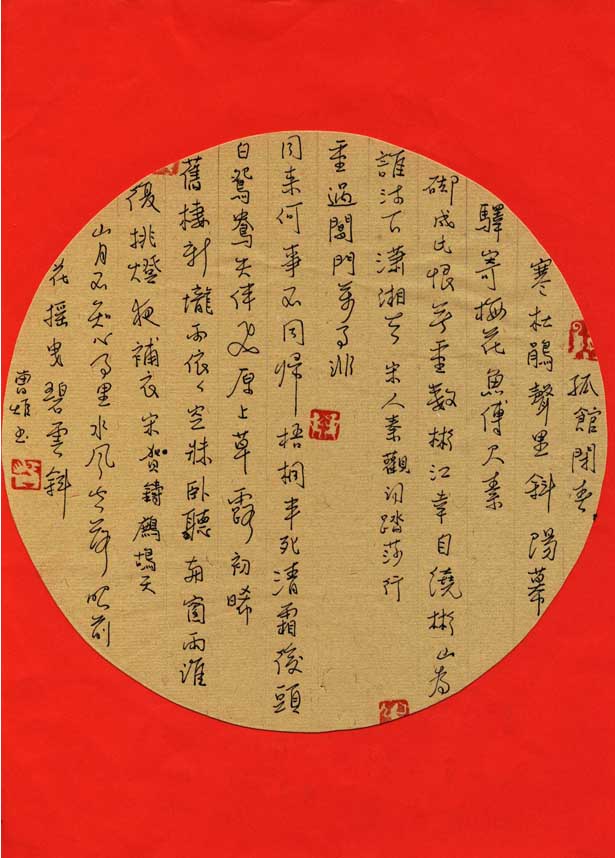 孤館閉春
寒杜鵑聲里斜陽幕
驛寄梅花魚傅尺素
砌成此恨無重數彬江幸自繞彬山為
誰流下瀟湘去 宋人秦觀詞踏莎行
重過閶門萬事非
同来何事不同歸梧桐半死清霜後頭
白鴛鴦失伴飛原上草露初晞
舊棲新壠兩依々空牀卧聽南窗雨誰
復挑燈夜補衣宋賀鑄鷓鴣天
山月不知心事里水風空落眼前
花摇曳碧雲斜
曹雄书